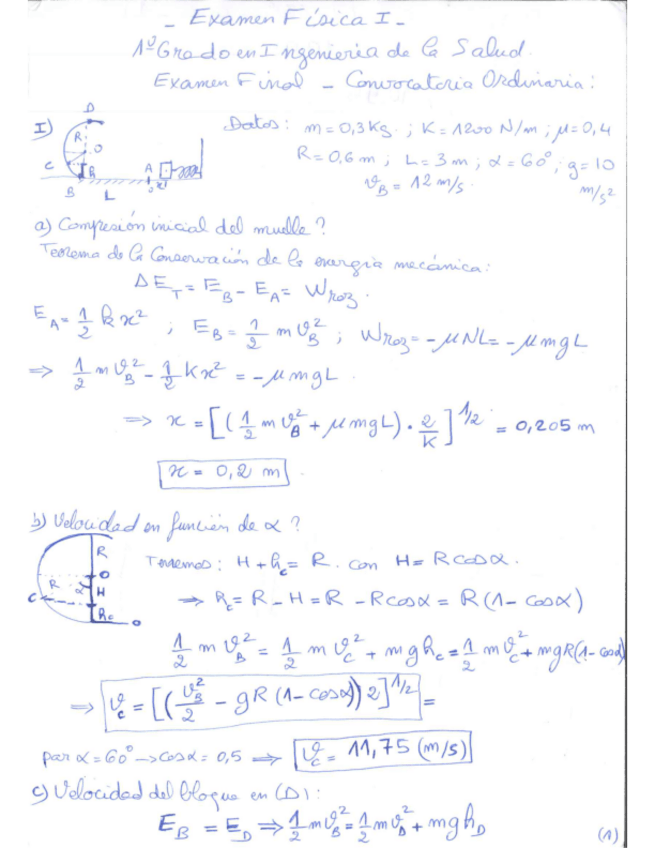 - Examen Física I -
1º Grado en Ingenieria de la Salud.
Examen Final - Convocatoria Ordinaria:
I)
D
R
O
C
R
B
L
A
0
x
Datos: m = 0,3 Kg. ; K = 1200 N/m ; μ = 0,4
R = 0,6 m ; L = 3 m ; α = 60° ; g = 10 m/s²
v_B = 12 m/s.
a) Compresión inicial del muelle?
Teorema de la Conservación de la energía mecánica:
ΔE_T = E_B - E_A = W_roz.
E_A = 1/2 k x² ; E_B = 1/2 m v_B² ; W_roz = -μNL = -μmgL
⇒ 1/2 m v_B² - 1/2 K x² = -μmgL.
⇒ x = [(1/2 m v_B² + μmgL) · 2/K]^1/2 = 0,205 m
x = 0,2 m.
b) Velocidad en función de α?
R
O
R
α
H
C
h_c
0
Tenemos: H + h_c = R. con H = R cosα.
⇒ h_c = R - H = R - R cosα = R (1 - cosα)
1/2 m v_B² = 1/2 m v_C² + mg h_c = 1/2 m v_C² + mgR(1 - cosα)
⇒ v_c = [(v_B²/2 - gR (1 - cosα)) 2]^1/2 =
par α = 60° → cosα = 0,5 ⇒ v_c = 11,75 (m/s)
c) Velocidad del bloque en (D):
E_B = E_D ⇒ 1/2 m v_B² = 1/2 m v_D² + mg h_D
(1)